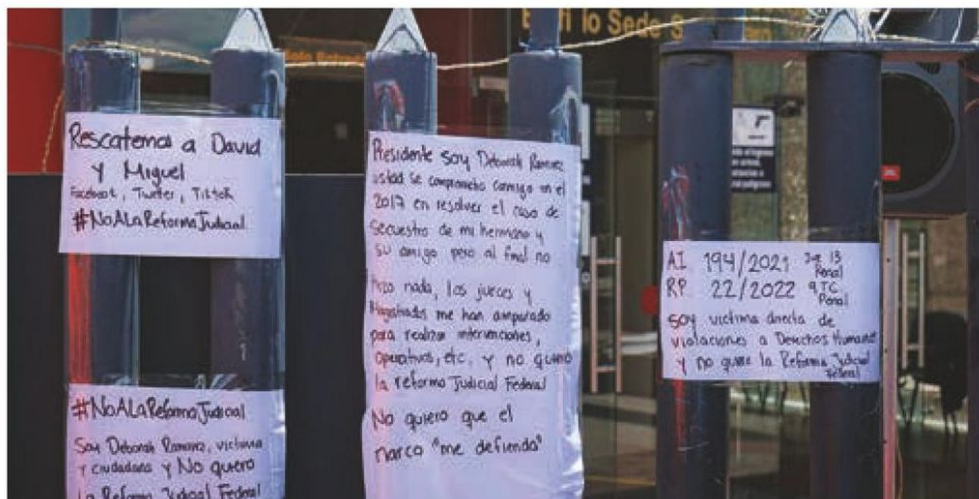 lo Sede S
Rescatemos a David
y Miguel
Facebook, Twiter, Tiktok
#NoALaReformaJudicial
#NoALaReformaJudicial
Soy Deborah Ramirez, victima
y ciudadana y No quiero
la Reforma Judicial Federal
Presidente soy Deborah Ramirez
usted se comprometio conmigo en el
2017 en resolver el caso de
secuestro de mi hermano y
su amigo pero al final no
hizo nada, los jueces y
Magistrados me han amparado
para realizar intervenciones,
operativos, etc, y no quiero
la reforma Judicial Federal
No quiero que el
narco "me defienda"
A.I. 194/2021 13 Penal
R.P. 22/2022 9 TC Penal
soy victima directa de
violaciones a Derechos Humanos
y no quiero la Reforma Judicial
Federal
JBL